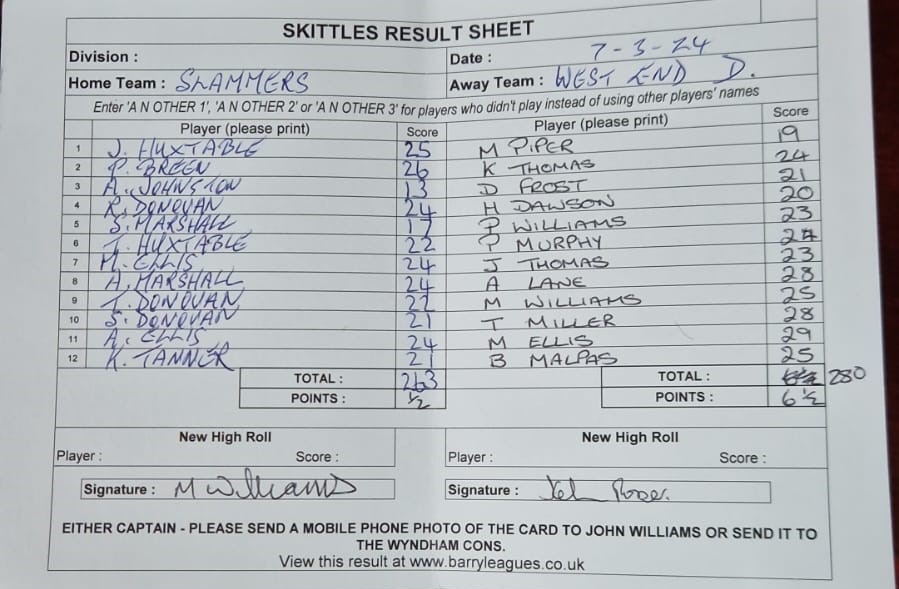 SKITTLES RESULT SHEET
Division : Date : 7-3-24
Home Team : SLAMMERS Away Team : WEST END D.
Enter 'A N OTHER 1', 'A N OTHER 2' or 'A N OTHER 3' for players who didn't play instead of using other players' names
Player (please print) Score Player (please print) Score
1 J. HUXTABLE 25 M PIPER 19
2 P. BREEN 26 K THOMAS 24
3 A. JOHNSTON 13 D FROST 21
4 R. DONOVAN 24 H DAWSON 20
5 S. MARSHALL 17 P WILLIAMS 23
6 T. HUXTABLE 22 P MURPHY 24
7 M. ELLIS 24 J THOMAS 23
8 A. MARSHALL 24 A LANE 28
9 T. DONOVAN 22 M WILLIAMS 25
10 S. DONOVAN 21 T MILLER 28
11 A. ELLIS 24 M ELLIS 29
12 K. TANNER 21 B MALPAS 25
TOTAL : 263 TOTAL : 280
POINTS : ½ POINTS : 6½
New High Roll New High Roll
Player : Score : Player : Score :
Signature : M Williams Signature :
EITHER CAPTAIN - PLEASE SEND A MOBILE PHONE PHOTO OF THE CARD TO JOHN WILLIAMS OR SEND IT TO
THE WYNDHAM CONS.
View this result at www.barryleagues.co.uk